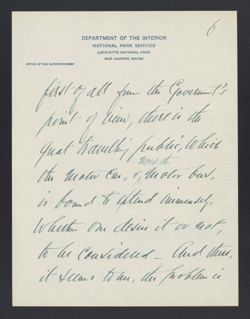 6
DEPARTMENT OF THE INTERIOR
NATIONAL PARK SERVICE
LAFAYETTE NATIONAL PARK
BAR HARBOR, MAINE
OFFICE OF THE SUPERINTENDENT
first of all from the Government's
point of view, there is the
great travelling public, which
the motor car, & motor bus,
is bound to extend immensely,
whether one desires it or not,
to be considered — And then,
it seems to me, the problem is